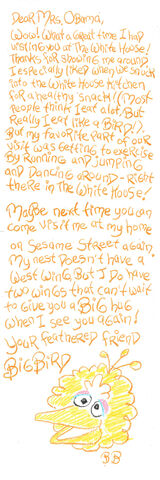 Dear Mrs. Obama,
Wow! What a great time I had
visiting you at The White House!
Thanks for showing me around.
I especially liked when we snuck
into the White House Kitchen
for a healthy snack! (Most
people think I eat alot. But
Really I eat like a Bird!).
But my favorite part of our
visit was getting to exercise
By Running and jumping
and Dancing around-right
there in The White House!
Maybe next time you can
come visit me at my home
on Sesame Street again.
My nest Doesn't have a
West Wing, But I Do have
two wings that can't wait
to give you a BIG hug
when I see you again!
Your feathered friend
BiG BiRD
BB